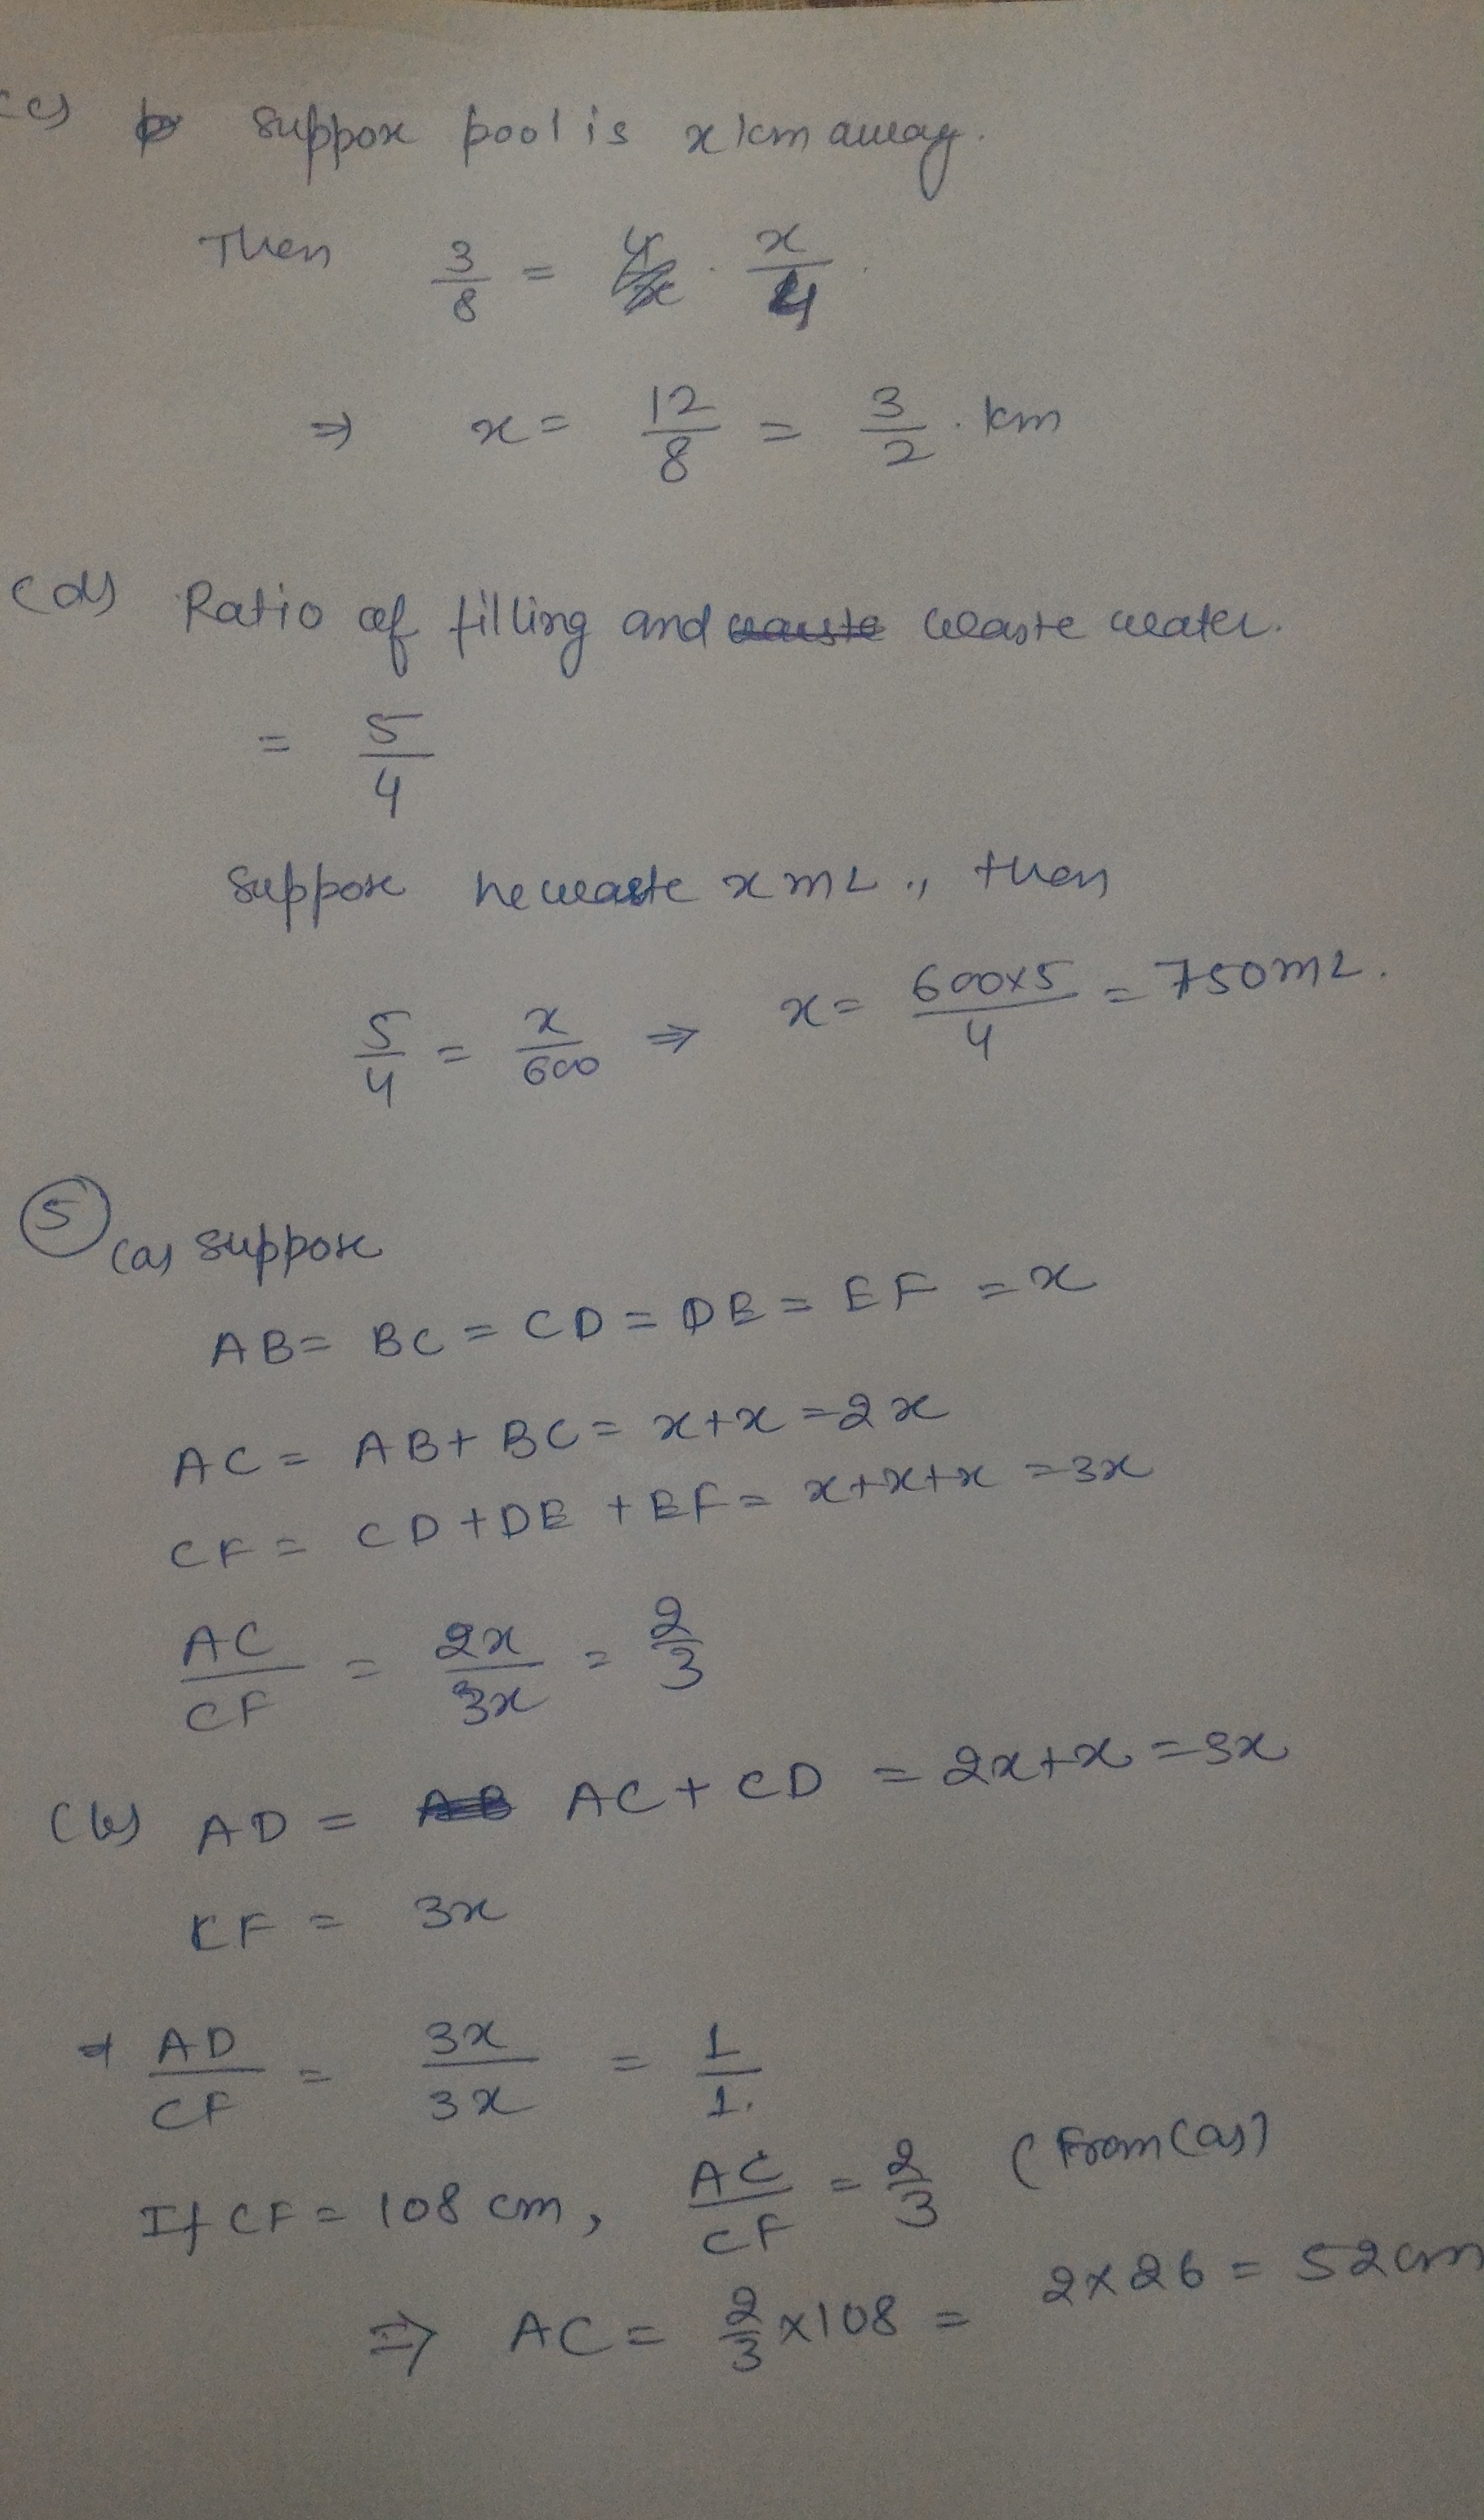 (c) suppose pool is x km away.
Then 3/8 = x/4
⇒ x = 12/8 = 3/2 . km
(d) Ratio of filling and waste waste water.
= 5/4
suppose he waste x mL ., then
5/4 = x/600 ⇒ x = 600×5/4 = 750 mL.
5
(a) suppose
AB = BC = CD = DE = EF = x
AC = AB + BC = x+x = 2x
CF = CD + DE + EF = x+x+x = 3x
AC/CF = 2x/3x = 2/3
(b) AD = AB AC + CD = 2x+x = 3x
CF = 3x
⇒ AD/CF = 3x/3x = 1/1.
If CF = 108 cm, AC/CF = 2/3 (From (a))
⇒ AC = 2/3 × 108 = 2×26 = 52 cm